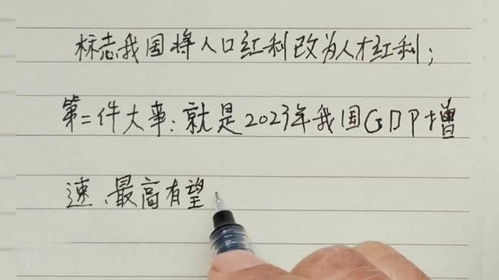 标志我国将人口红利改为人才红利;
第二件大事:就是2023年我国GDP增
速、最高有望